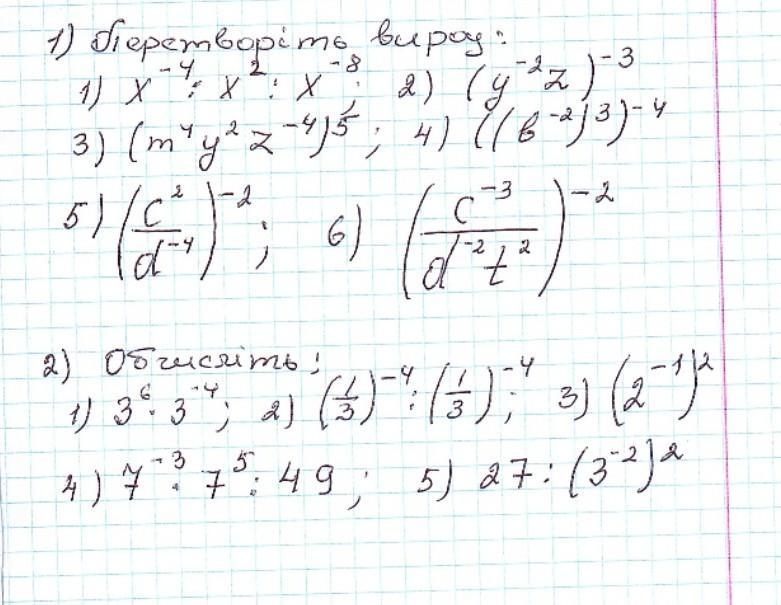 1) Перетворіть вираз:
1) x⁻⁴ : x² : x⁻⁸; 2) (y⁻²z)⁻³
3) (m⁴y²z⁻⁴)⁵; 4) ((b⁻²)³)⁻⁴
5) (c²/d⁻⁴)⁻²; 6) (c⁻³/d⁻²t²)⁻²
2) Обчисліть:
1) 3⁶ · 3⁻⁴; 2) (1/3)⁻⁴ : (1/3)⁻⁴; 3) (2⁻¹)²
4) 7⁻³ · 7⁵ : 49; 5) 27 : (3⁻²)²